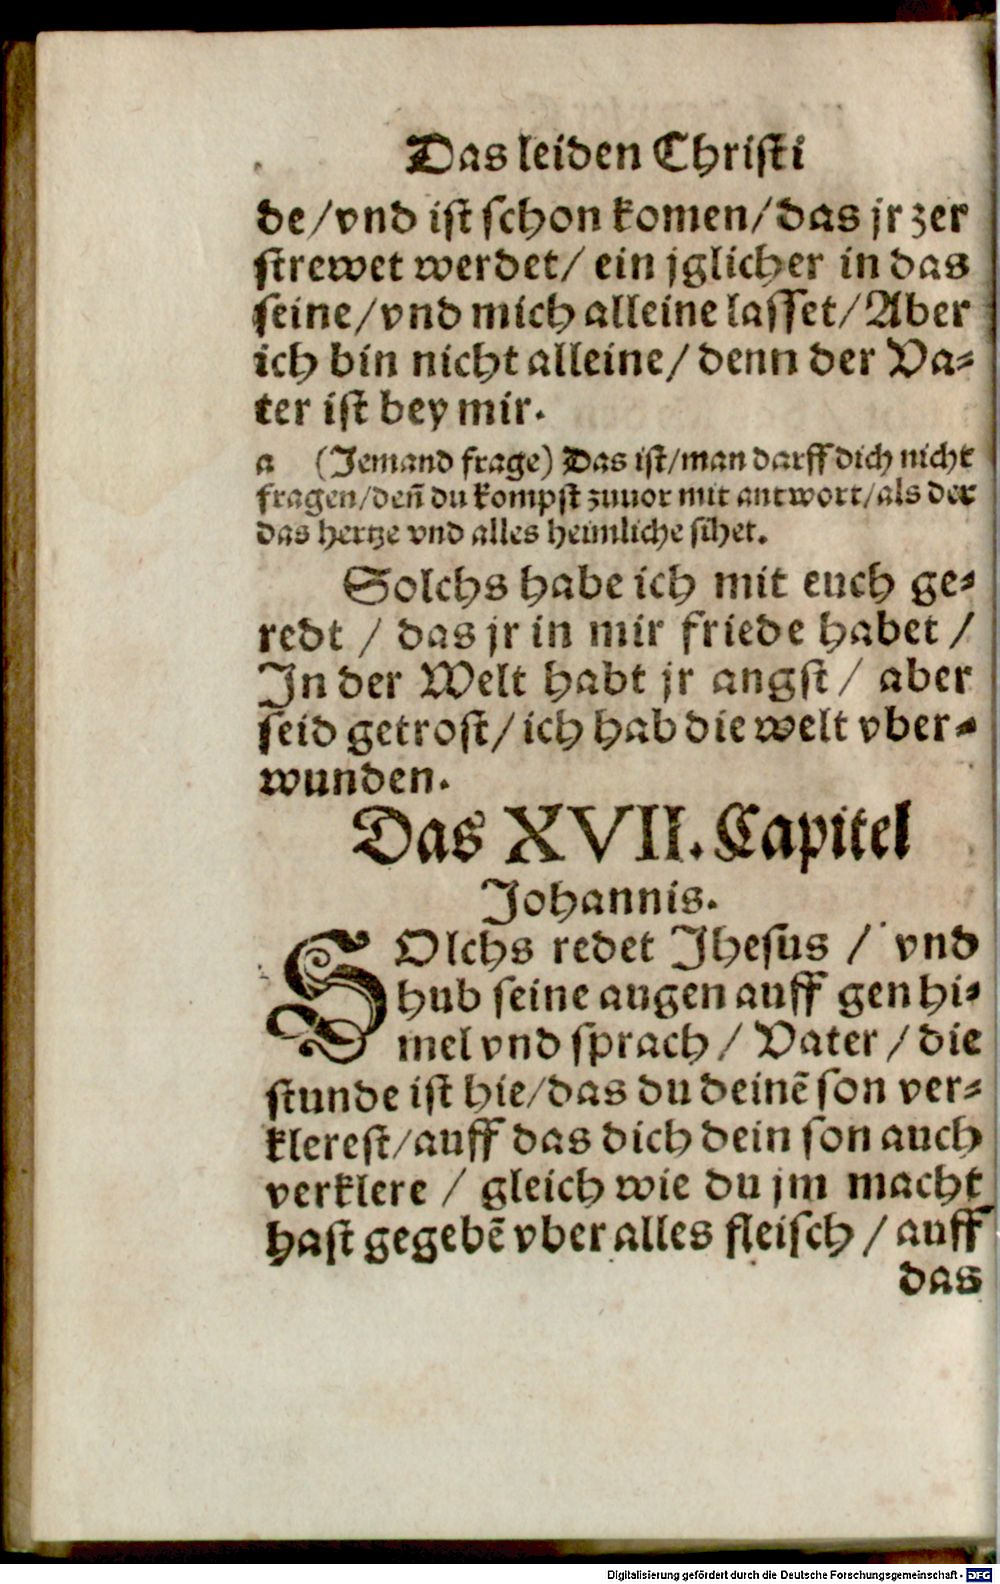 Das leiden Christi
de/vnd ist schon komen/das jr zer
strewet werdet/ ein jglicher in das
seine/vnd mich alleine lasset/Aber
ich bin nicht alleine/denn der Va-
ter ist bey mir.
a (Jemand frage) Das ist/man darff dich nicht
fragen/deñ du kompst zuuor mit antwort/als der
das hertze vnd alles heimliche sihet.
Solchs habe ich mit euch ge-
redt / das jr in mir friede habet /
In der Welt habt jr angst / aber
seid getrost/ich hab die welt vber-
wunden.
Das XVII. Capitel
Johannis.
SOlchs redet Jhesus / vnd
hub seine augen auff gen hi-
mel vnd sprach / Vater / die
stunde ist hie/das du deinē son ver-
klerest/auff das dich dein son auch
verklere / gleich wie du jm macht
hast gegebē vber alles fleisch / auff
das
Digitalisierung gefördert durch die Deutsche Forschungsgemeinschaft - DFG